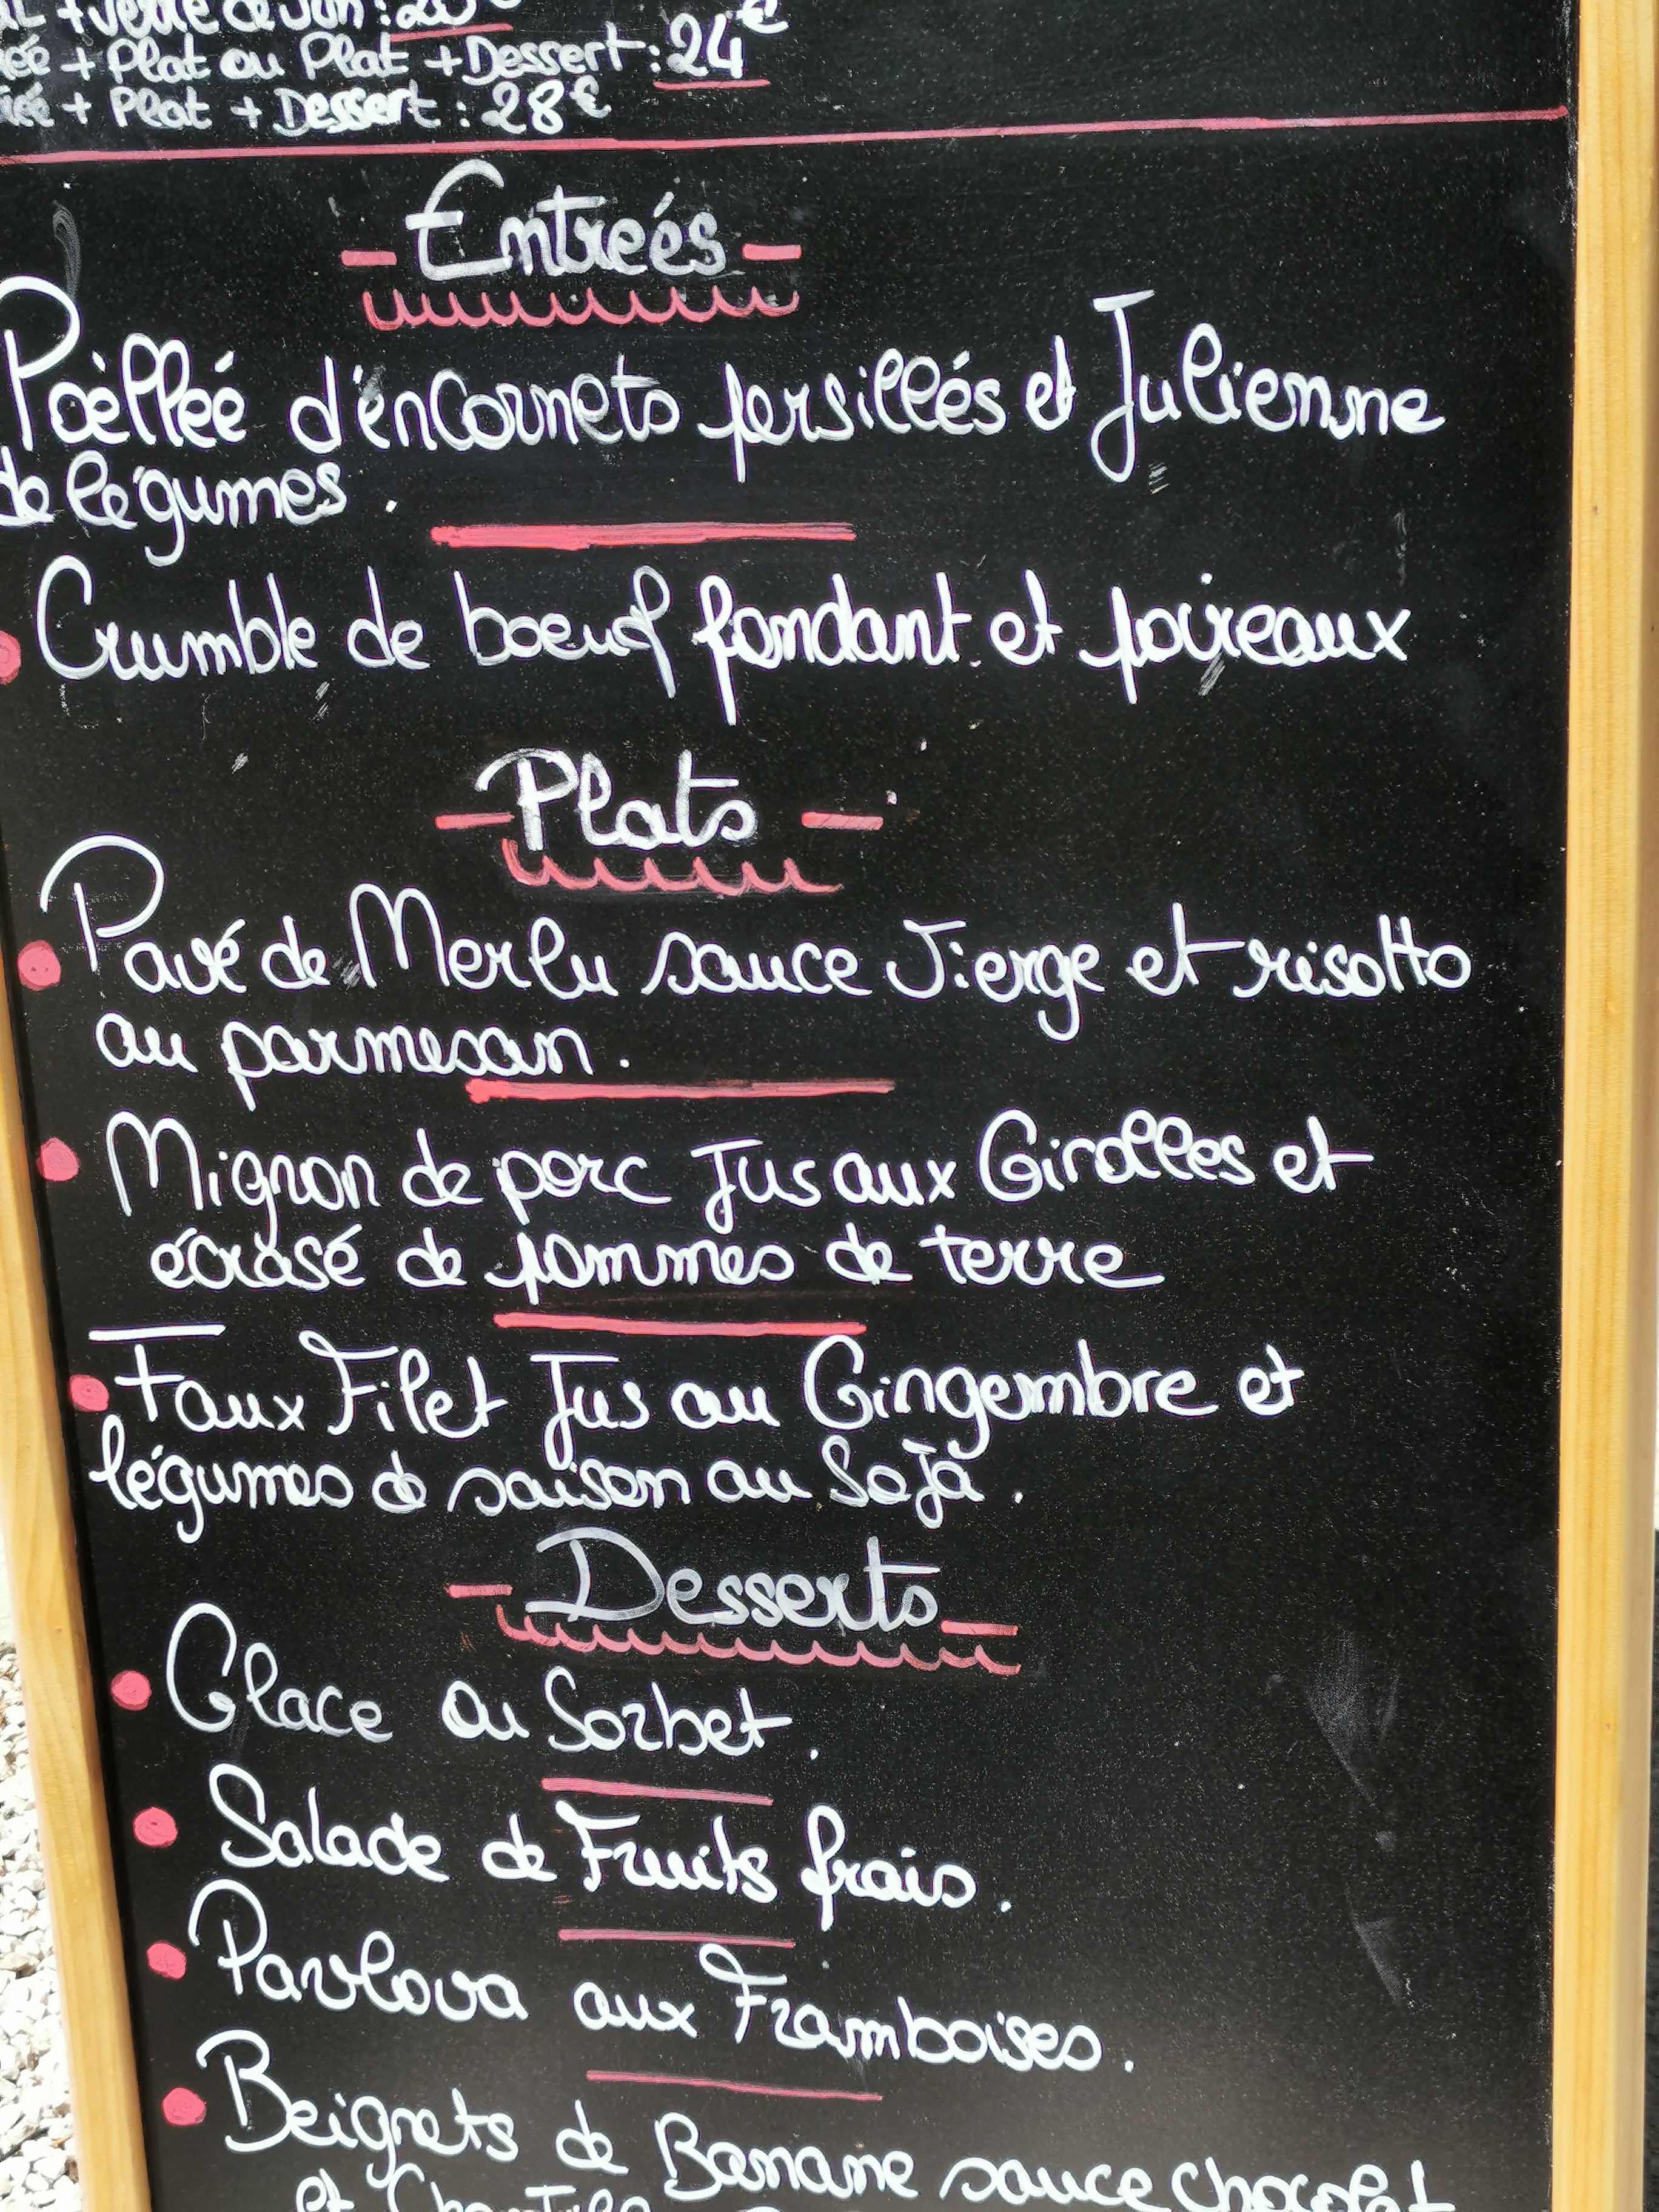 + verre de vin : 20€
+ Plat ou Plat + Dessert : 24€
+ Plat + Dessert : 28€
- Entreés -
Poèlleé d'éncornets persillés et Julienne
de légumes .
Crumble de boeuf fondant et poireaux
- Plats -
Pavé de Merlu sauce Vierge et risotto
au parmesan .
Mignon de porc Jus aux Girolles et
écrasé de pommes de terre
Faux Filet Jus au Gingembre et
légumes de saison au Soja .
- Desserts -
Glace ou Sorbet .
Salade de Fruits frais .
Pavlova aux Framboises .
Beignets de Banane sauce chocolat
et Chantilly